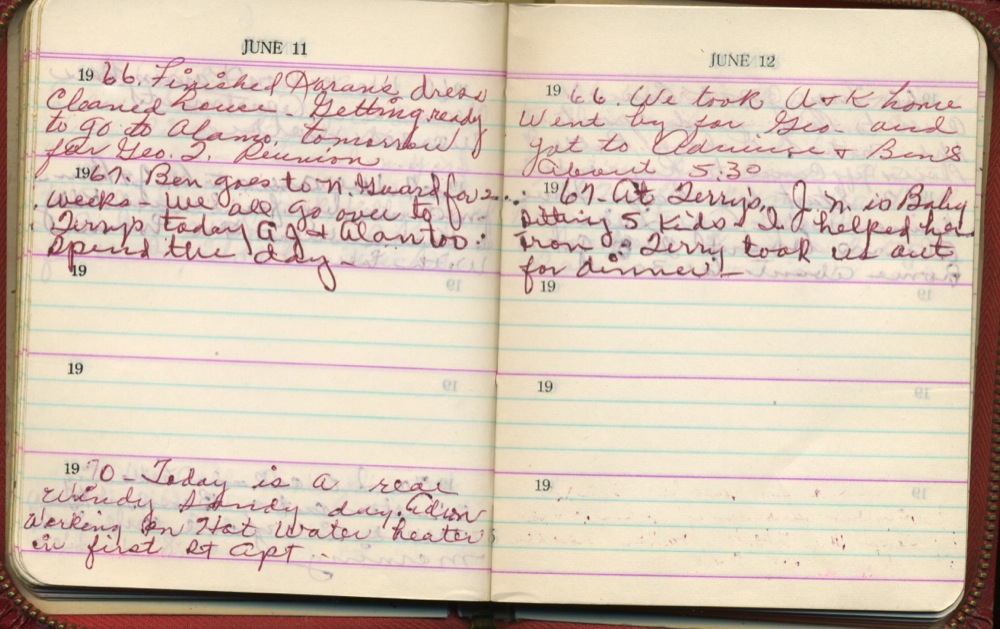 JUNE 11
1966. Finished Daran's dress
Cleaned house - Getting ready
to go to Alamo, tomorrow
for Geo. I. Reunion
1967. Ben goes to N. Guard for 2
weeks - we all go over to
Terrys today AJ + Alan too.
Spend the day -
19
19
1970 - Today is a real
windy sandy day. Edwin
working on Hot Water heater
in first Rt Apt
JUNE 12
1966. We took A + K home
Went by for Geo. and
got to + Ben's
About 5.30
1967 - At Terry's. J. N. is Baby
sitting 5 Kids - I helped her
iron . Terry took us out
for dinner! -
19
19
19